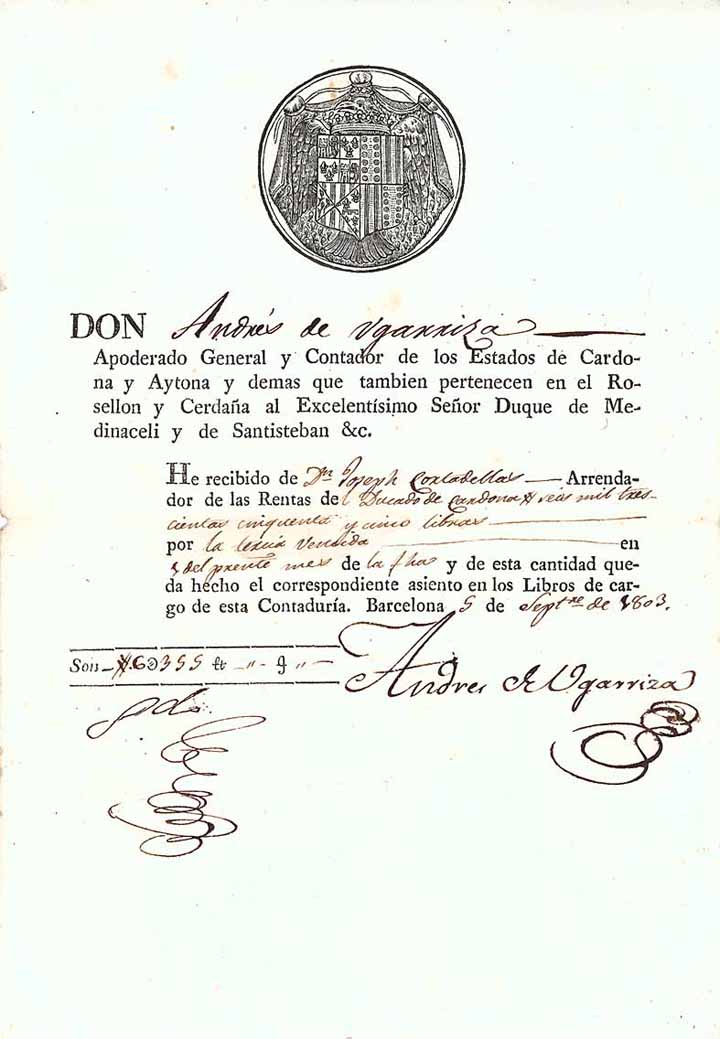 DON Andrés de Ugarriza
Apoderado General y Contador de los Estados de Cardo-
na y Aytona y demas que tambien pertenecen en el Ro-
sellon y Cerdaña al Excelentísimo Señor Duque de Me-
dinaceli y de Santisteban &c.
He recibido de Dn Joseph Cortadellas — Arrenda-
dor de las Rentas del Ducado de Cardona seis mil tres-
cientas cinquenta y cinco libras
por la tercia Vencida en
5 del preñte mes de la fha y de esta cantidad que-
da hecho el correspondiente asiento en los Libros de car-
go de esta Contaduría. Barcelona 5 de Septre de 1803.
Son 6355 ₶ " ș "
Andres de Ugarriza